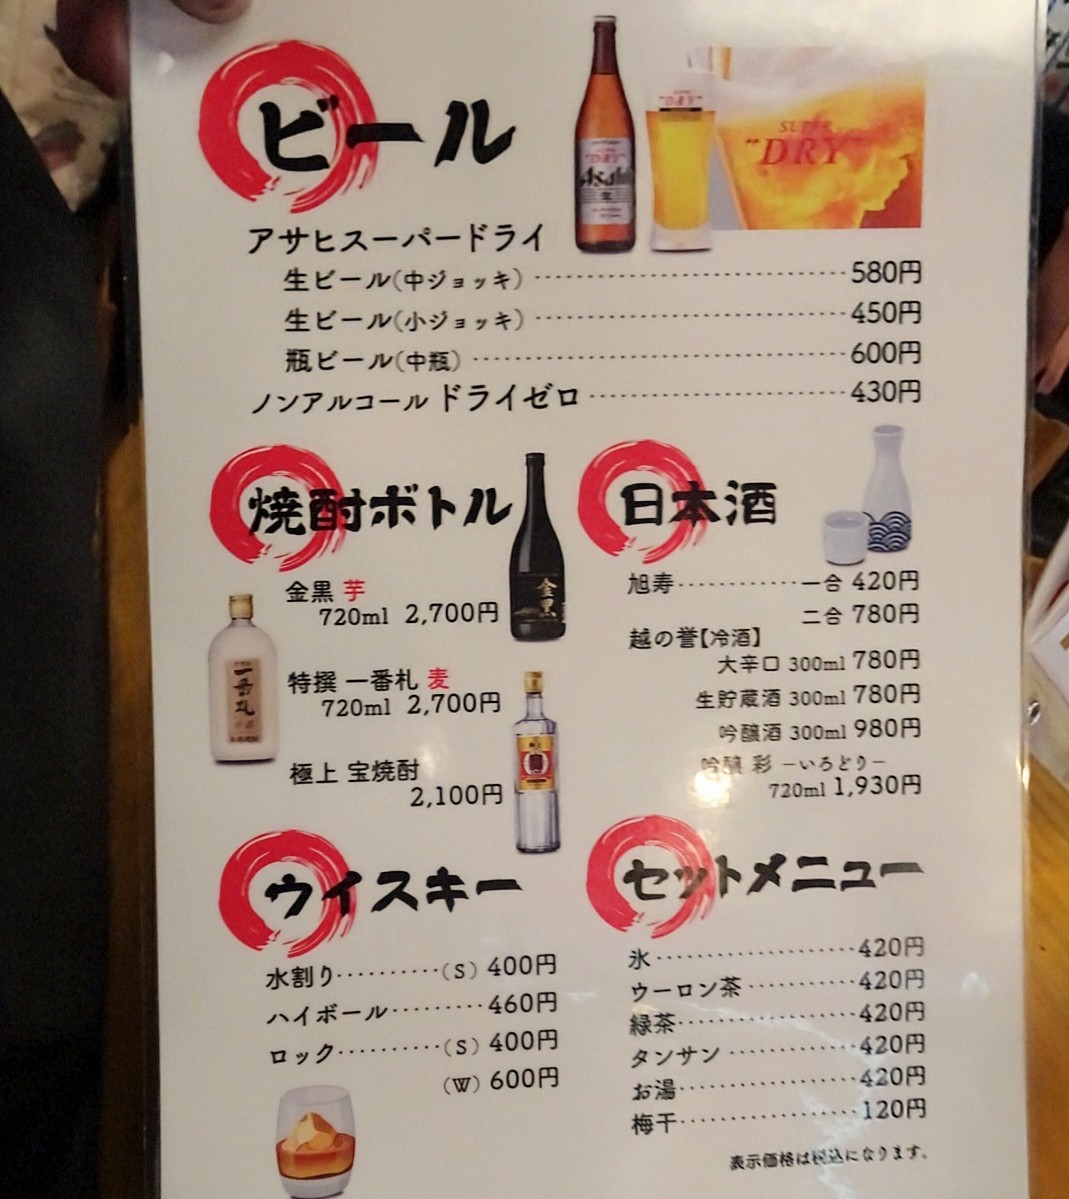 ビール
SUPER
"DRY"
"DRY"
"DRY"
Asahi
アサヒスーパードライ
生ビール(中ジョッキ) 580円
生ビール(小ジョッキ) 450円
瓶ビール(中瓶) 600円
ノンアルコール ドライゼロ 430円
焼酎ボトル
金黒 芋
720ml 2,700円
金黒
特撰 一番札 麦
720ml 2,700円
一番札
極上 宝焼酎
2,100円
日本酒
旭寿 一合 420円
二合 780円
越の誉【冷酒】
大辛口 300ml 780円
生貯蔵酒 300ml 780円
吟醸酒 300ml 980円
吟醸 彩 －いろどり－
720ml 1,930円
ウイスキー
水割り (S) 400円
ハイボール 460円
ロック (S) 400円
(W) 600円
セットメニュー
氷 420円
ウーロン茶 420円
緑茶 420円
タンサン 420円
お湯 420円
梅干 120円
表示価格は税込になります。